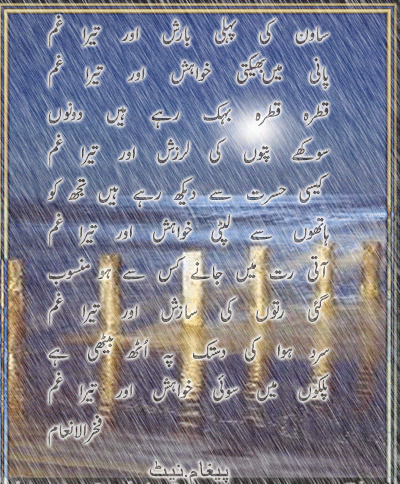 ساون کی پہلی بارش اور تیرا غم
پانی میں بھیگتی خواہش اور تیرا غم
قطرہ قطرہ بہک رہے ہیں دونوں
سوکھے پتوں کی لرزش اور تیرا غم
کیسی حسرت سے دیکھ رہے ہیں تجھ کو
ہاتھوں سے لپٹی خواہش اور تیرا غم
آتی رت میں جانے کس سے ہو منسوب
گئی رتوں کی سازش اور تیرا غم
سرد ہوا کی دستک پہ اُٹھ بیٹھی ہے
پلکوں میں سوئی خواہش اور تیرا غم
فخرالانعام
پیغام.نیٹ